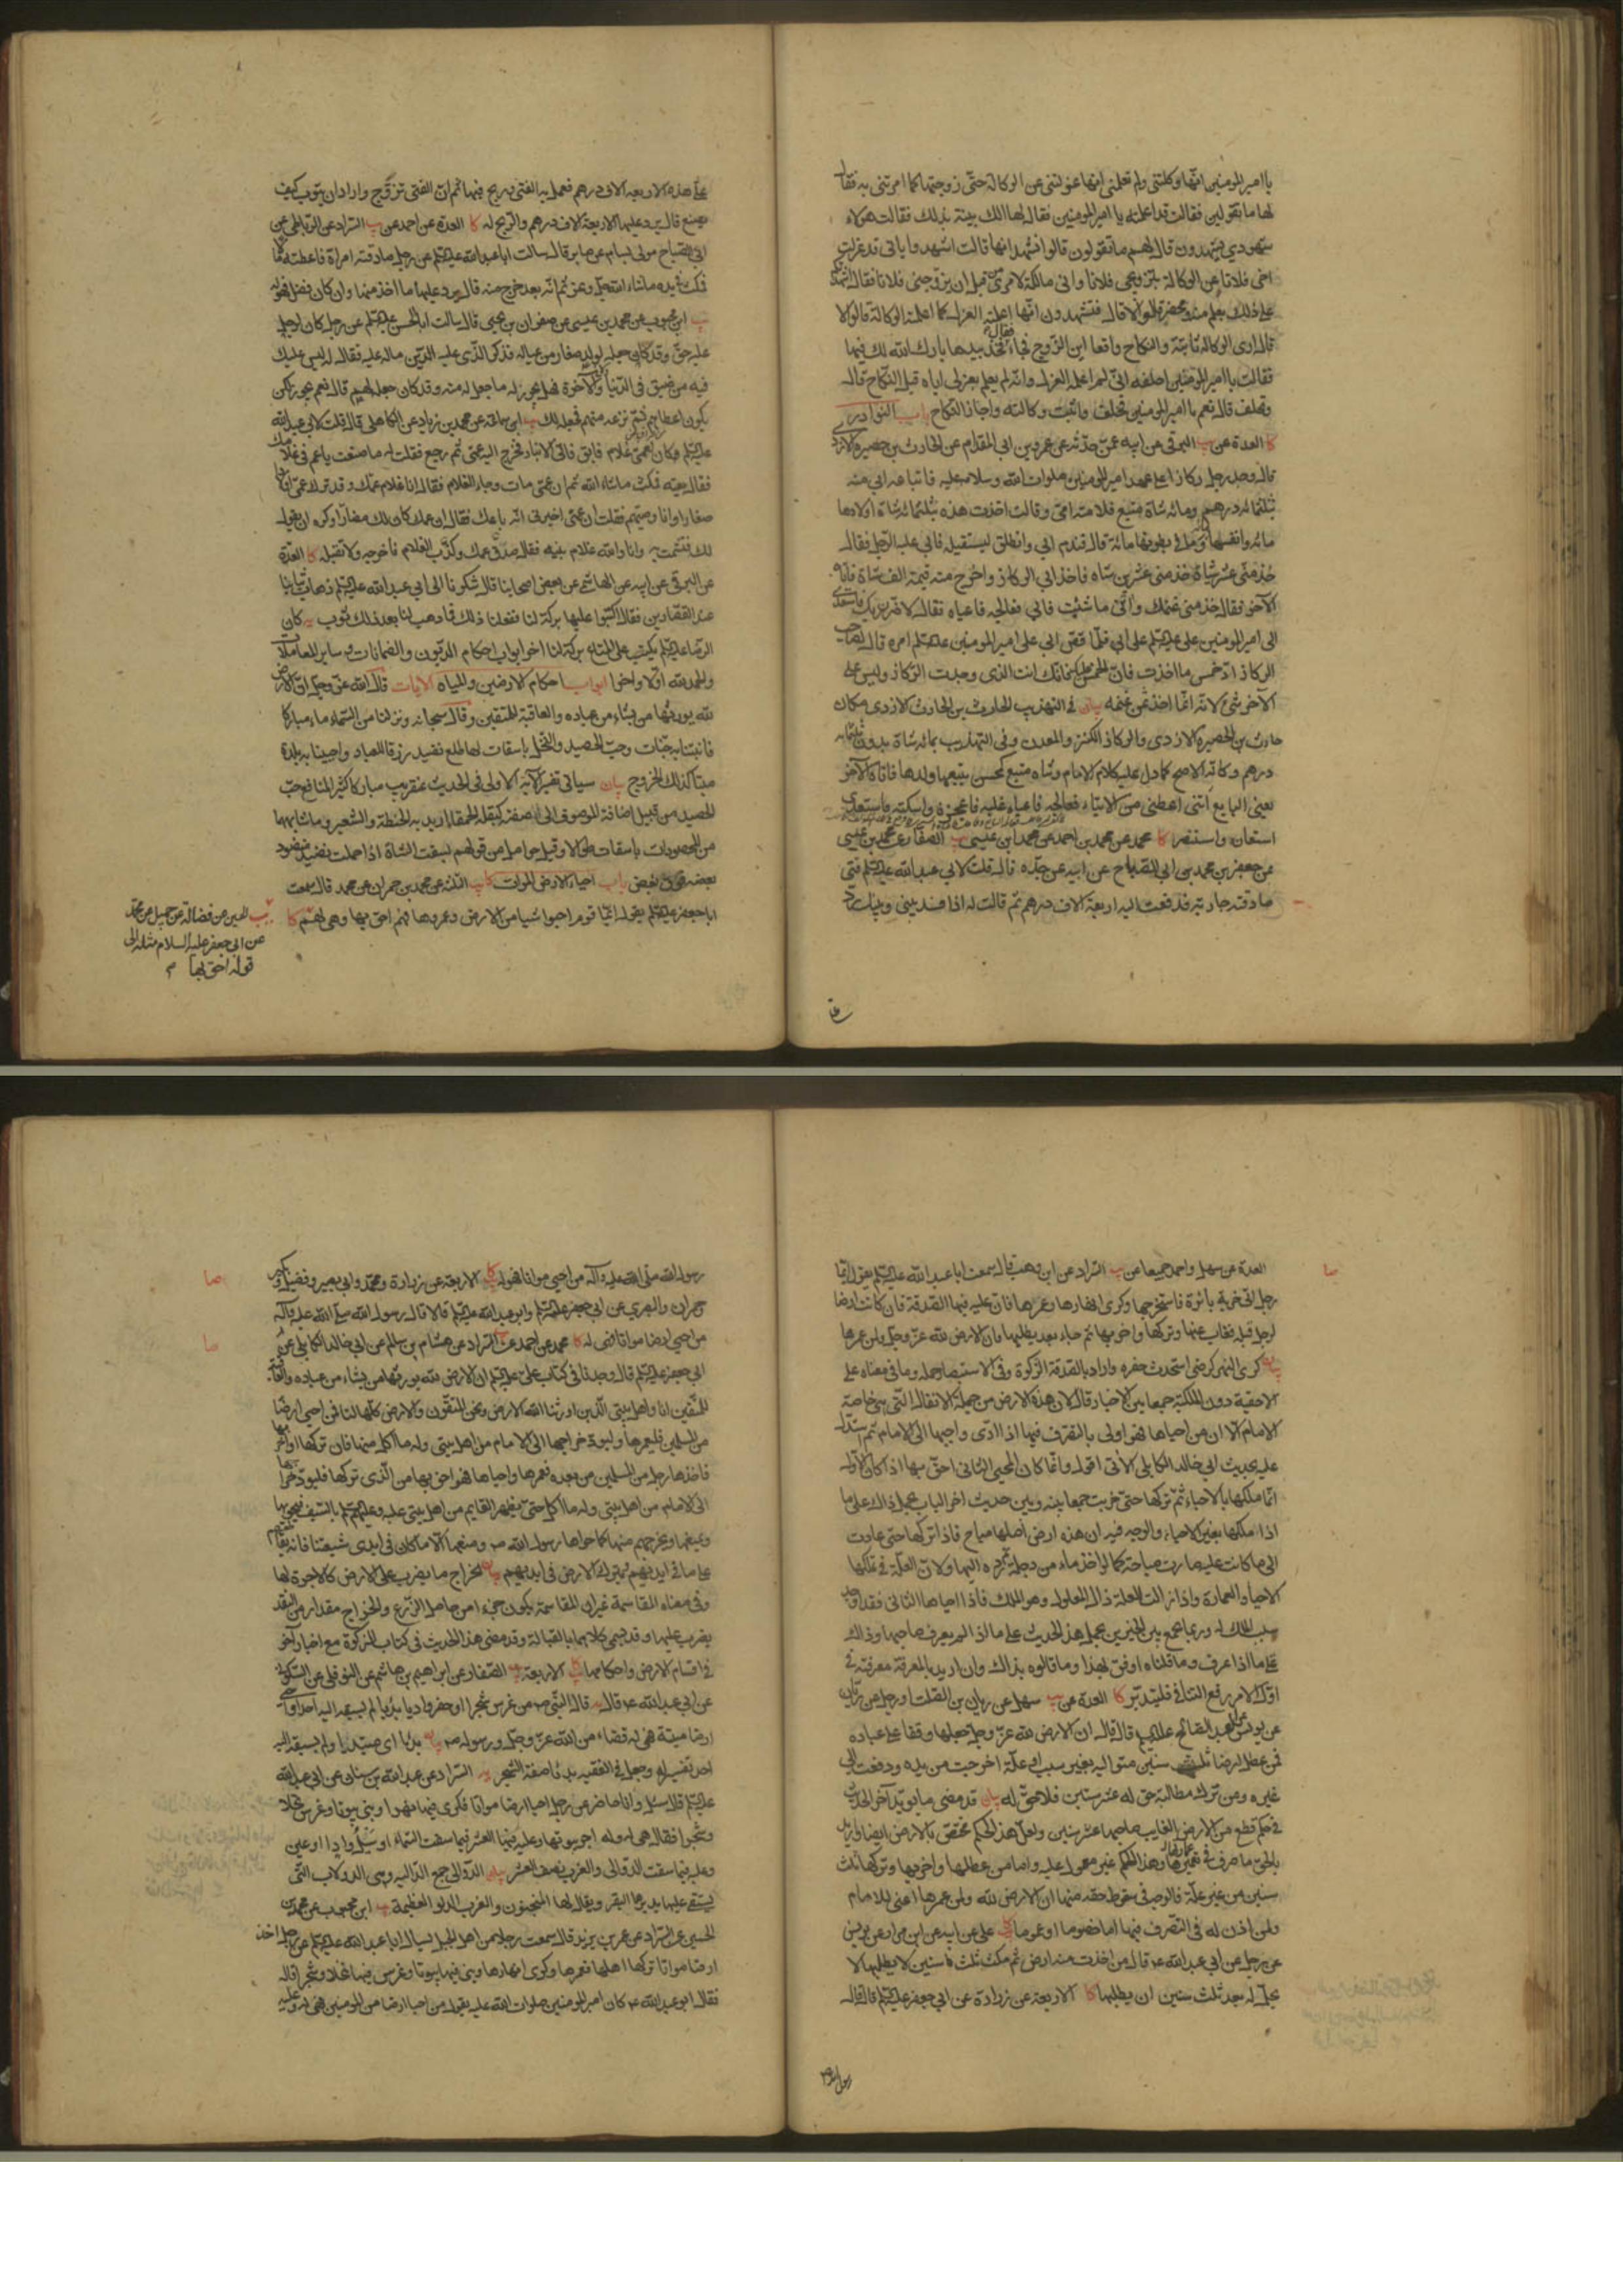 يا امير المومنين انها وكلتني ولم تعلمني انها عزلتني عن الوكالة حتى زوجتها كما امرتني به فقال
لها ما تقولين فقالت قد اعلمته يا امير المومنين فقال لها الك بينة بذلك فقالت هؤلاء
شهودي يشهدون قال لهم ما تقولون قالوا نشهد انها قالت اشهدوا باني قد عزلت
اخي فلانا عن الوكالة بتزويجي فلانا واني مالكة لامري قبل ان يزوجني فلانا فقال اشهدتكم
على ذلك بعلم منه ومحضر قالوا لا قال فتشهدون انها اعلمته العزل كما اعلمته الوكالة قالوا لا
قال ارى الوكالة ثابتة والنكاح واقعا اين الزوج فجاء فقال خذ بيدها بارك الله لك فيها
فقالت يا امير المومنين احلفه اني لم اعلمه العزل وانه لم يعلم بعزلي اياه قبل النكاح قال
وتحلف قال نعم يا امير المومنين فحلف واثبت وكالته واجاز النكاح باب النوادر
كا العدة عن يب البرقي عن ابيه عمن حدثه عن عمرو بن ابي المقدام عن الحارث بن حصيرة الازدي
قال وجد رجل ركازا على عهد امير المومنين صلوات الله وسلامه عليه فابتاعه ابي منه
بثلثمائة درهم ومائة شاة متبع فلامته امي وقالت اخذت هذه بثلثمائة شاة اولادها
مائة وانفسها مائة وما في بطونها مائة قال فندم ابي وانطلق ليستقيله فابى عليه الرجل فقال
خذ مني عشر شياة خذ مني عشرين شاة فاعياه فاخذ ابي الركاز واخرج منه قيمة الف شاة فاتاه
الآخر فقال خذ مني غنمك وائتني ما شئت فابى فعالجه فاعياه فقال لاضرن بك فاستعدى
الى امير المومنين على عليه السلم على ابي فلما قص ابي على امير المومنين عليه السلم امره قال لصاحب
الركاز اد خمس ما اخذت فان الخمس عليك فانك انت الذي وجدت الركاز وليس على
الآخر شئ لانه انما اخذ ثمن غنمه بيان في التهذيب الحارث بن الحارث الازدي مكان
حارث بن الحصيرة الازدي والركاز الكنز والمعدن وفي التهذيب بمائة شاة بدون ثلثمائة
درهم وكانه الاصح كما دل عليه كلام الامام وشاة متبع كمحسن يتبعها ولدها فاتاه الآخر
يعني البايع ائتني اعطني من الايتاء فعالجه فاعياه غلبه فاعجزه واسكته فاستعدى
استعان واستنصر كا محمد عن محمد بن احمد عن محمد ابن عيسى يب الصفار عن محمد بن عيسى
عن جعفر بن محمد بن ابي الصباح عن ابيه عن جده قال قلت لابي عبد الله عليه السلم فتى
صادقته جارية فدفعت اليه اربعة آلاف درهم ثم قالت له اذا فسد بيني وبينك رد
على هذه الاربعة الاف درهم فعمل به الفتى وربح فيها ثم ان الفتى تزوج واراد ان يتوب كيف
يصنع قال يرد عليها الاربعة الاف درهم والربح له كا العدة عن احمد عن يب السراد عن
ابي الصباح مولى بسام عن صابر قال سالت ابا عبد الله عليه السلم عن رجل صادقته امراة فاعطته مالا
فمكث في يده ما شاء الله ثم انه بعد خرج منه قال يرد عليها ما اخذ منها وان كان فضل فهو له
يب ابن محبوب عن محمد بن عيسى عن صفوان بن يحيى قال سالت ابا الحسن عليه السلم عن رجل كان لرجل
عليه حق وقد كان جعله لولد صغار من عياله فذكر الذي عليه الدين ماله عليه فقال له ليس عليك
فيه من ضيق في الدنيا ولا آخرة فهل يجوز له ما جعل له منه وقد كان جعله لهم قال نعم يجوز لكن
يكون اعطاهم ثم نزعه منهم فجعله لك يب ابن سماعة عن محمد بن زياد عن الكاهلي قال قلت لابي عبد الله
عليه السلم كان لعمي غلام فابق فاتى الانبار فخرج اليه عمي ثم رجع فقلت له ما صنعت يا عم في غلامك
فقال بعته فمكث ما شاء الله ثم ان عمي مات وجاء الغلام فقال انا غلام عمك وقد ترك عمي اولادا
صغارا وانا وصيهم فقلت ان عمي اخبرني انه باعك فقال ان عمك كان لك مضارا وكره ان يقول
لك فتشمت به وانا والله غلام بنيه فقال صدق عمك وكذب الغلام فاخرجه ولا تقبله كا العدة
عن البرقي عن ابيه عن الهاشمي عن بعض اصحابنا قال شكونا الى ابي عبد الله عليه السلم ذهاب ثيابنا
عند القصارين فقال اكتبوا عليها بركة لنا ففعلنا ذلك فما ذهب لنا بعد ذلك ثوب يه كان
الرضا عليه السلم يكتب على المتاع بركة لنا آخر ابواب احكام الديون والضمانات وساير المعاملات
والحمد لله اولا وآخرا ابواب احكام الارضين والمياه الايات قال الله عز وجل ان الارض
لله يورثها من يشاء من عباده والعاقبة للمتقين وقال سبحانه ونزلنا من السماء ماء مباركا
فانبتنا به جنات وحب الحصيد والنخل باسقات لها طلع نضيد رزقا للعباد واحيينا به بلدة
ميتا كذلك الخروج بيان سياتي تفسير الآية الاولى في الحديث عنقريب مباركا كثير المنافع حب
الحصيد من قبيل اضافة الموصوف الى صفته كبقلة الحمقاء اريد به الحنطة والشعير وما شابههما
من المحصودات باسقات طوالا وقيل حوامل من قولهم بسقت الشاة اذا حملت نضيد منضود
بعضه فوق بعض باب احياء الارض الموات كا يب الثلثة عن محمد بن حمران عن محمد قال سمعت
ابا جعفر عليه السلم يقول ايما قوم احيوا شيئا من الارض وعمروها فهم احق بها وهي لهم كا
يب الحسين عن فضالة عن جميل عن محمد
عن ابي جعفر عليه السلام مثله الى
قوله احق بها
العدة عن سهل واحمد جميعا عن يب السراد عن ابن وهب قال سمعت ابا عبد الله عليه السلم يقول ايما
رجل اتى خربة بائرة فاستخرجها وكرى انهارها وعمرها فان عليه فيها الصدقة فان كانت ارضا
لرجل قبله فغاب عنها وتركها واخربها ثم جاء بعد يطلبها فان الارض لله عز وجل ولمن عمرها
بيان كرى النهر كرضي استحدث حفره واراد بالصدقة الزكوة وفي الاستبصار حمله وما في معناه على
الاحقية دون الملكية جمعا بين الاخبار قال لان هذه الارض من جملة الانفال التي هي خاصة
الامام الا ان من احياها فهو اولى بالتصرف فيها اذا ادى واجبها الى الامام ثم استدل
عليه بحديث ابي خالد الكابلي الآتي اقول وانما كان المحيي الثاني احق بها اذا كان الاول
انما ملكها بالاحياء ثم تركها حتى خربت جمعا بينه وبين حديث آخر الباب بحمل ذاك على ما
اذا ملكها بغير الاحياء والوجه فيه ان هذه ارض اصلها مباح فاذا تركها حتى عادت
الى ما كانت عليه صارت مباحة كما لو اخذ ماء من دجلة ثم رده اليها ولان العلة في تملكها
الاحياء والعمارة واذا زالت العلة زال المعلول وهو الملك فاذا احياها الثاني فقد اوجد
سبب الملك له وربما يجمع بين الخبرين بحمل هذا الحديث على ما اذا لم يعرف صاحبها وذاك
على ما اذا عرف وما قلناه اوفق لهذا وما قالوه بذاك وان اريد بالمعرفة معرفته في
اول الامر رفع التنافي فليتدبر كا العدة عن يب سهل عن ريان بن الصلت او رجل عن ريان
عن يونس عن العبد الصالح عليه السلم قال قال ان الارض لله عز وجل جعلها وقفا على عباده
فمن عطل ارضا ثلث سنين متوالية بغير سبب او علة اخرجت من يده ودفعت الى
غيره ومن ترك مطالبة حق له عشر سنين فلا حق له بيان قد مضى ما يويد آخر الحديث
بالحق ما صرف في
سنين من غير علة فالوجه في سقوط حقه منها ان الارض لله ولمن عمرها اعني للامام
ولمن اذن له في التصرف فيها اما خصوصا او عموما كا علي عن ابيه عن ابن مرار عن يونس
عن رجل عن ابي عبد الله ع قال من اخذت منه ارض ثم مكث ثلث سنين لا يطلبها لا
يحل له بعد ثلث سنين ان يطلبها كا الاربعة عن زرارة عن ابي جعفر عليه السلم قال قال
رسول الله
رسول الله صلى الله عليه وآله من احيى مواتا فهو له كا الاربعة عن زرارة ومحمد وابي بصير وفضيل وبكير
وحمران والبصري عن ابي جعفر عليه السلم وابي عبد الله عليه السلم قالا قال رسول الله صلى الله عليه وآله
من احيى ارضا مواتا فهي له كا محمد عن احمد عن يب السراد عن هشام بن سالم عن ابي خالد الكابلي عن
ابي جعفر عليه السلم قال وجدنا في كتاب علي عليه السلم ان الارض لله يورثها من يشاء من عباده والعاقبة
للمتقين انا واهل بيتي الذين اورثنا الله الارض ونحن المتقون والارض كلها لنا فمن احيى ارضا
من المسلمين فليعمرها وليود خراجها الى الامام من اهل بيتي وله ما اكل منها فان تركها او اخربها
فاخذها رجل من المسلمين من بعده فعمرها واحياها فهو احق بها من الذي تركها فليود خراجها
الى الامام من اهل بيتي وله ما اكل حتى يظهر القايم من اهل بيتي عليه وعليهم السلم بالسيف فيحويها
ويمنعها ويخرجهم منها كما حواها رسول الله ص ومنعها الا ما كان في ايدي شيعتنا فانه يقاطعهم
على ما في ايديهم ويترك الارض في ايديهم بيان الخراج ما يضرب على الارض كالاجرة لها
وفي معناه المقاسمة غير ان المقاسمة يكون جزء امن حاصل الزرع والخراج مقدار من النقد
يضرب عليها وقد يسمى كلاهما بالقبالة وقد مضى هذا الحديث في كتاب الزكوة مع اخبار آخر
في اقسام الارض واحكامها كا الاربعة يب الصفار عن ابراهيم بن هاشم عن النوفلي عن السكوني
عن ابي عبد الله ع قال يه قال النبي ص من غرس شجرا او حفر واديا بديا لم يسبقه اليه احد او احيى
ارضا ميتة فهي له قضاء من الله عز وجل ورسوله ص بيان بديا اي مبتديا ولم يسبقه اليه
احد تفسير له وجعل في الفقيه بديا صفة الشجر يه السراد عن عبد الله بن سنان عن ابي عبد الله
عليه السلم قال سئل وانا حاضر عن رجل احيا ارضا مواتا فكرى فيها نهرا وبنى بيوتا وغرس نخلا
وشجرا فقال هي له وله اجر بيوتها وعليه فيها العشر فيما سقت السماء او سيل واد او عين
وعليه فيما سقت الدوالي والغرب نصف العشر بيان الدوالي جمع الدالية وهي الدولاب التي
يستقى عليها يديرها البقر ويقال لها المنجنون والغرب الدلو العظيمة يب ابن محبوب عن محمد بن
الحسين عن السراد عن عمر بن يزيد قال سمعت رجلا من اهل الجبل يسال ابا عبد الله عليه السلم عن رجل اخذ
ارضا مواتا تركها اهلها فعمرها وكرى انهارها وبنى فيها بيوتا وغرس فيها نخلا وشجرا قال
فقال ابو عبد الله ع كان امير المومنين صلوات الله عليه يقول من احيا ارضا من المومنين فهي له وعليه